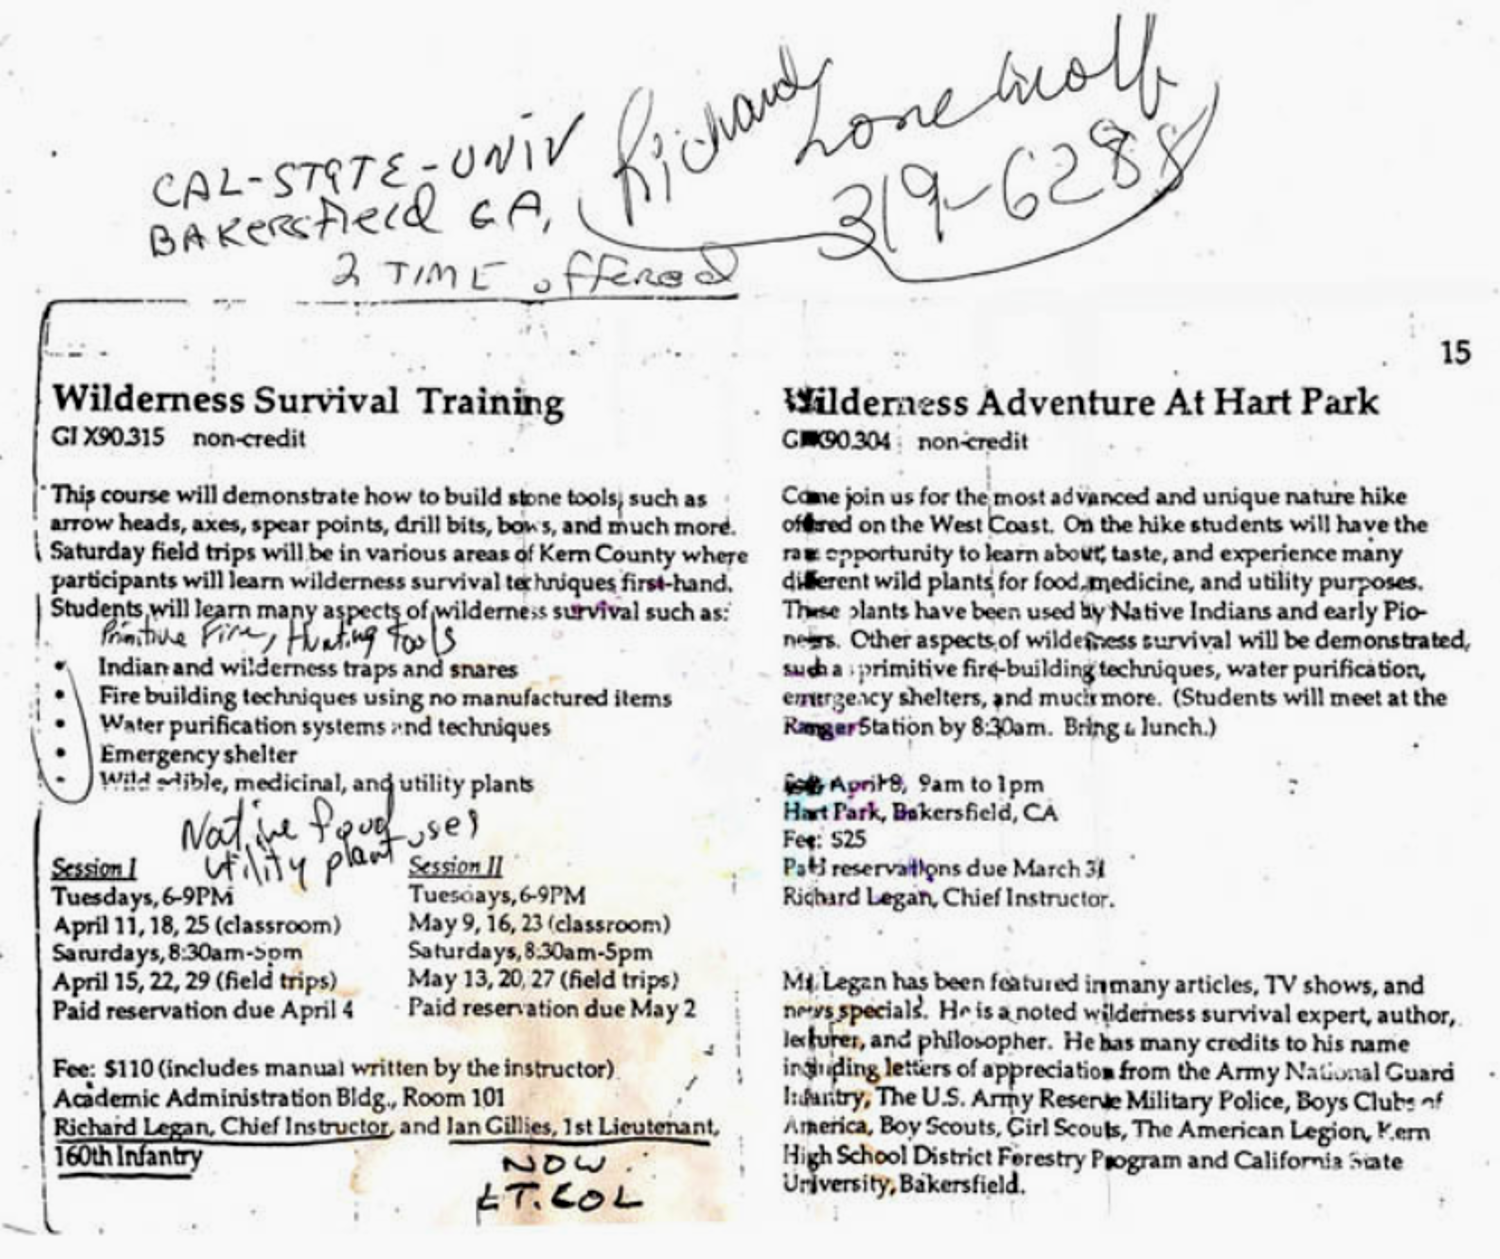 Richard Lonewolf
319-6288
CAL-STATE-UNIV
BAKERSfield CA,
2 TIME offered
15
Wilderness Survival Training
GI X90.315 non-credit
This course will demonstrate how to build stone tools, such as
arrow heads, axes, spear points, drill bits, bows, and much more.
Saturday field trips will be in various areas of Kern County where
participants will learn wilderness survival techniques first-hand.
Students will learn many aspects of wilderness survival such as:
Primitive Fire, Hunting Tools
• Indian and wilderness traps and snares
• Fire building techniques using no manufactured items
• Water purification systems and techniques
• Emergency shelter
• Wild edible, medicinal, and utility plants
Native food uses
utility plant
Session I
Tuesdays, 6-9PM
April 11, 18, 25 (classroom)
Saturdays, 8:30am-5pm
April 15, 22, 29 (field trips)
Paid reservation due April 4
Session II
Tuesdays, 6-9PM
May 9, 16, 23 (classroom)
Saturdays, 8:30am-5pm
May 13, 20, 27 (field trips)
Paid reservation due May 2
Fee: $110 (includes manual written by the instructor)
Academic Administration Bldg., Room 101
Richard Legan, Chief Instructor, and Ian Gillies, 1st Lieutenant,
160th Infantry
NOW
LT. COL
Wilderness Adventure At Hart Park
GI X90.304 non-credit
Come join us for the most advanced and unique nature hike
offered on the West Coast. On the hike students will have the
rare opportunity to learn about, taste, and experience many
different wild plants for food, medicine, and utility purposes.
These plants have been used by Native Indians and early Pio-
neers. Other aspects of wilderness survival will be demonstrated,
such as primitive fire-building techniques, water purification,
emergency shelters, and much more. (Students will meet at the
Ranger Station by 8:30am. Bring a lunch.)
April 8, 9am to 1pm
Hart Park, Bakersfield, CA
Fee: $25
Paid reservations due March 31
Richard Legan, Chief Instructor.
Mr. Legan has been featured in many articles, TV shows, and
news specials. He is a noted wilderness survival expert, author,
lecturer, and philosopher. He has many credits to his name
including letters of appreciation from the Army National Guard
Infantry, The U.S. Army Reserve Military Police, Boys Clubs of
America, Boy Scouts, Girl Scouts, The American Legion, Kern
High School District Forestry Program and California State
University, Bakersfield.